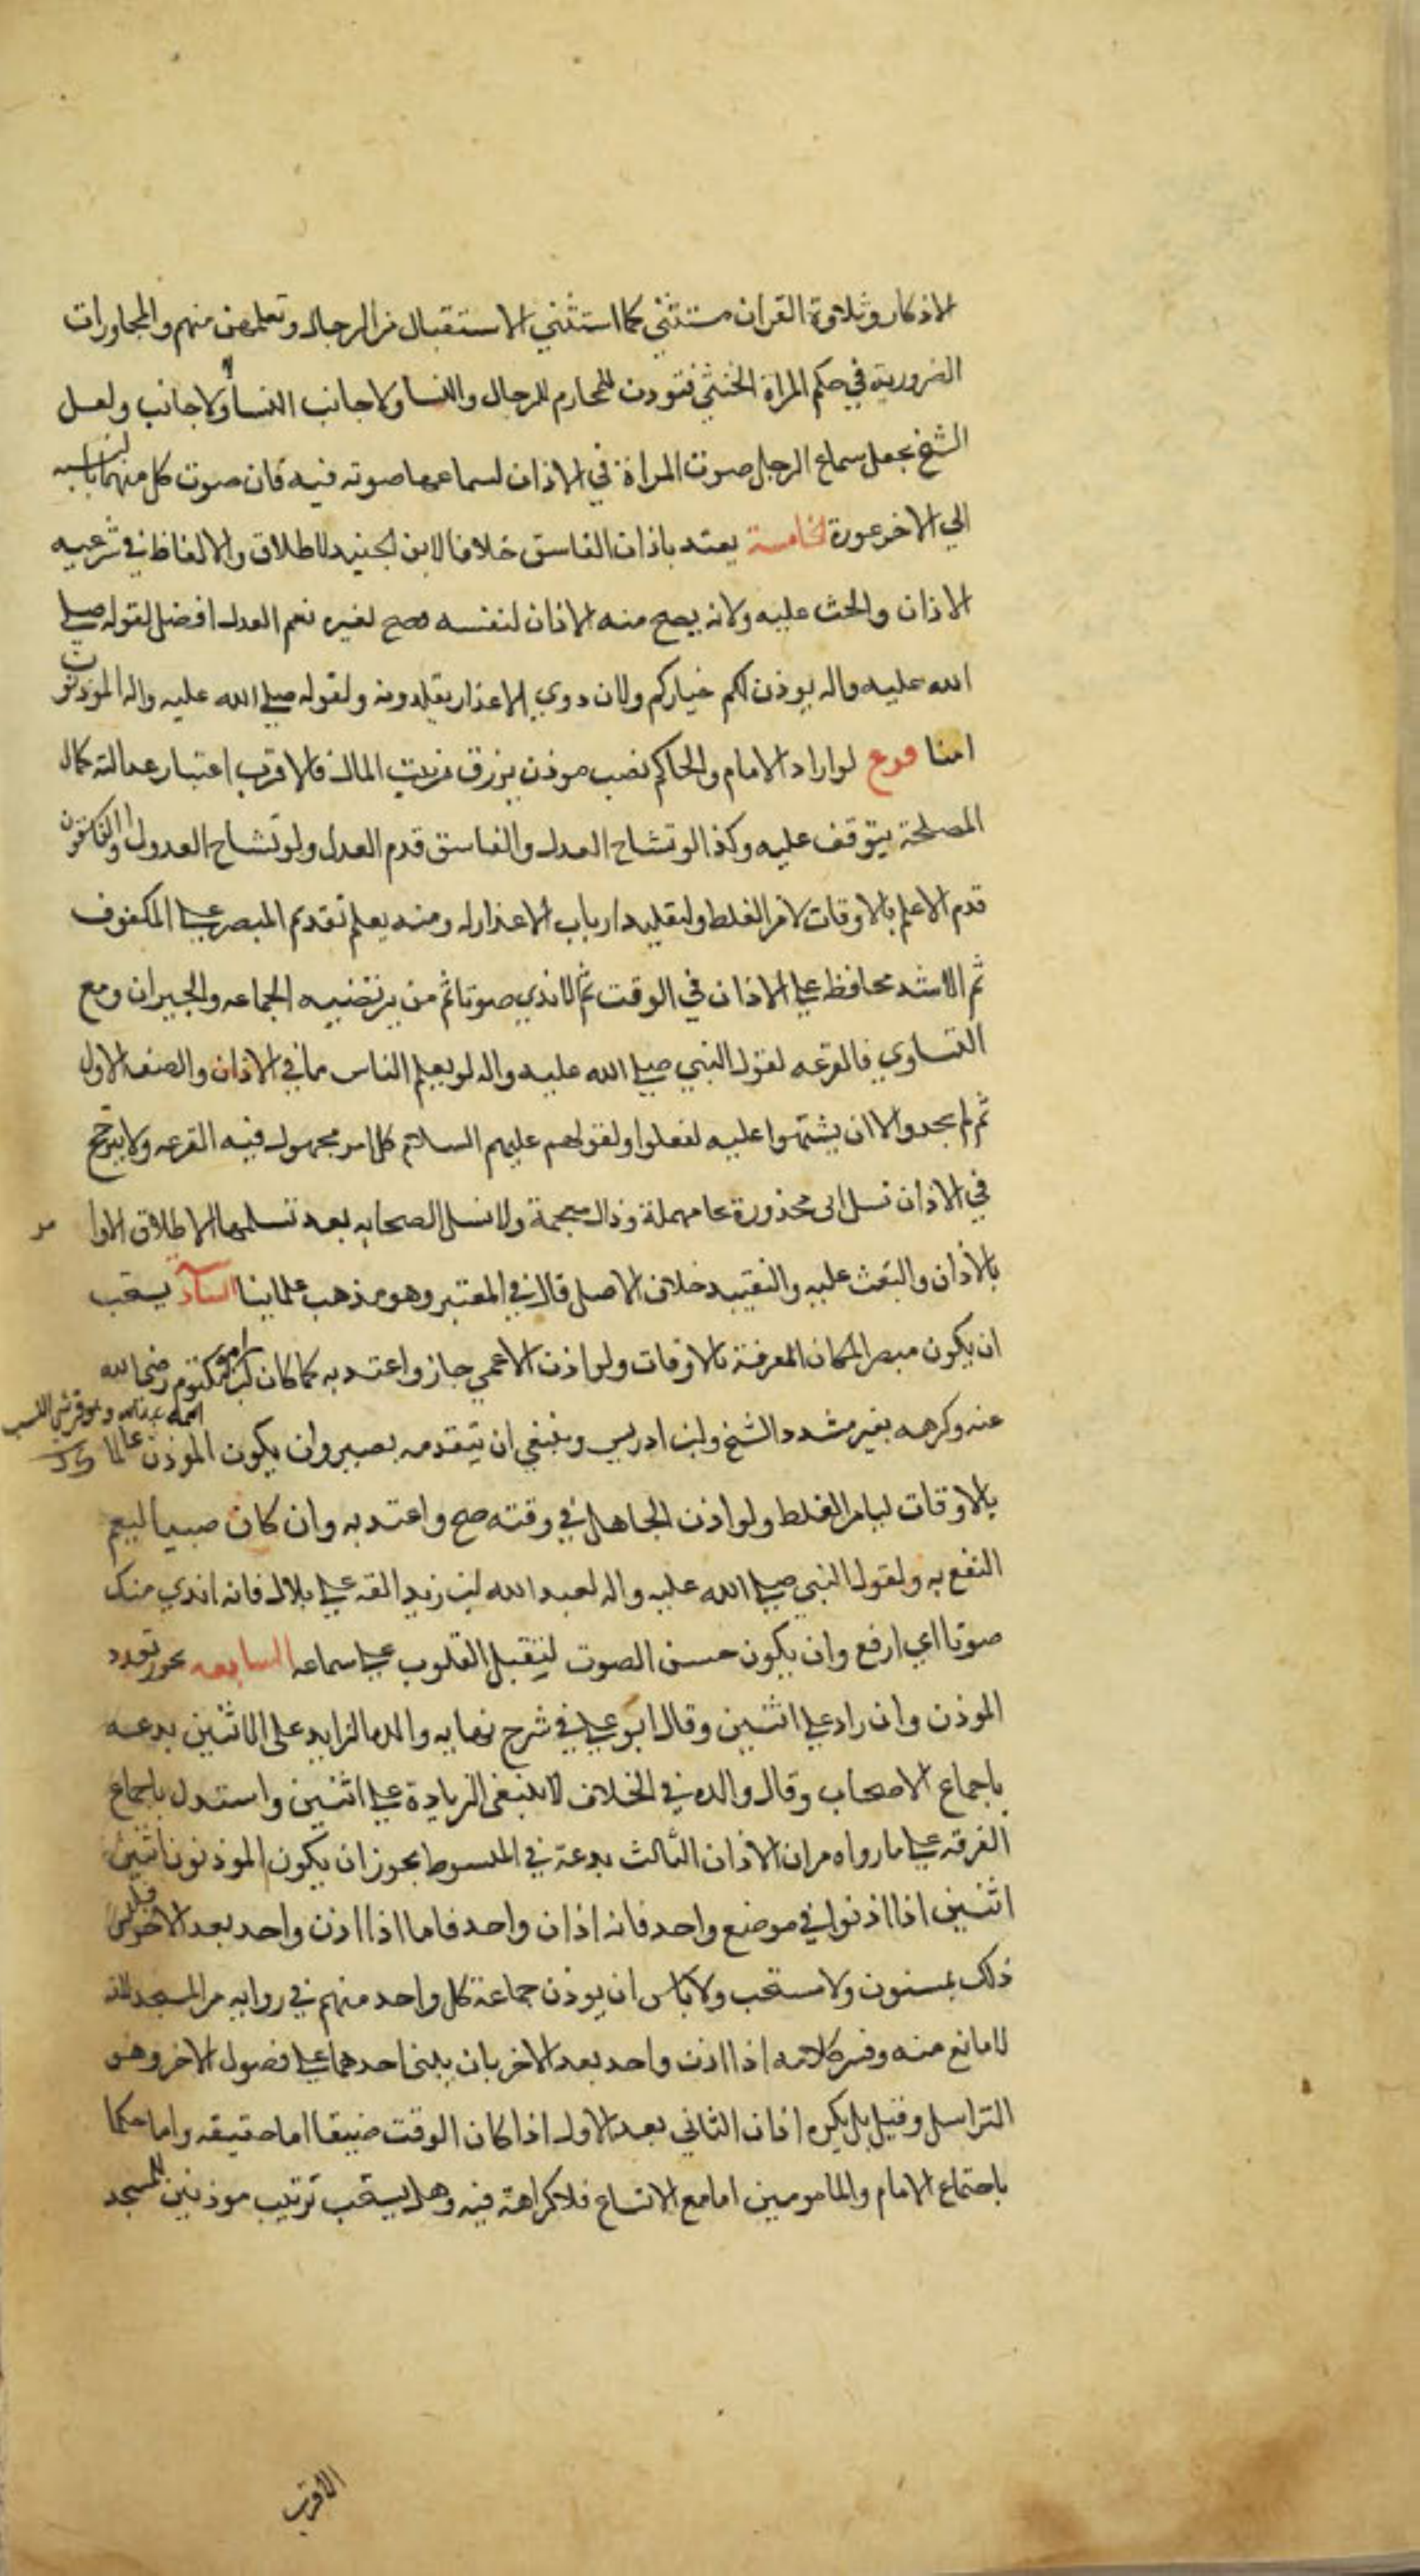 الاذكار وتلاوة القران مستثنى كما استثني الاستقبال من الرجال وتعلمهن منهم والمحاورات
الضرورية في حكم المراة الخنثى فتوذن للمحارم للرجال والنسا ولاجانب النسا لا لاجانب ولعل
الشيخ يجعل سماع الرجل صوت المراة في الاذان لسماعها صوته فيه فان صوت كل منهما بالنسبه
الي الاخر عورة الخامسة يعتد باذان الفاسق خلافا لابن الجنيد لاطلاق الالفاظ في شرعيه
الاذان والحث عليه ولانه يصح منه الاذان لنفسه فصح لغيره نعم العدل افضل لقوله صلي
الله عليه واله يوذن لكم خياركم ولان ذوي الاعذار يقلدونه ولقوله صلي الله عليه واله الموذنون
امنا فرع لو اراد الامام والحاكم نصب موذن يرزق من بيت المال فالاقرب اعتبار عدالته كمال
المصلحة يتوقف عليه وكذا لو تشاح العدل والفاسق قدم العدل ولو تشاح العدول او الفاسقون
قدم الاعلم بالاوقات لامن الغلط ولتقليد ارباب الاعذار له ومنه يعلم تقديم المبصر علي المكفوف
ثم الاشد محافظه علي الاذان في الوقت ثم الاندي صوتا ثم من يرتضيه الجماعه والجيران ومع
التساوي فالقرعه لقول النبي صلي الله عليه واله لو يعلم الناس ما في الاذان والصف الاول
ثم لم يجدوا الا ان يستهموا عليه لفعلوا ولقولهم عليهم السلام كل امر مجهول فيه القرعه ولا يترجح
في الاذان نسل ابي محذورة بحا مهملة وذال معجمة ولا نسل الصحابه بعد نسلهما لاطلاق الاوامر
بالاذان والبعث عليه والتقييد خلاف الاصل قال في المعتبر وهو مذهب علماينا السادسة يستحب
ان يكون مبصرا لمكان المعرفة بالاوقات ولو اذن الاعمي جاز واعتد به كما كان لابن ام مكتوم رضي الله
عنه وكرهه بغير مشدد الشيخ وابن ادريس وينبغي ان يتقدمه بصير وان يكون الموذن عالما
بالاوقات ليامن الغلط ولو اذن الجاهل في وقته صح واعتد به وان كان صبيا ليعم
النفع به ولقول النبي صلي الله عليه واله لعبد الله بن زيد القه علي بلال فانه اندي منك
صوتا اي ارفع وان يكون حسن الصوت لتقبل القلوب علي سماعه السابعه يجوز تعدد
الموذن وان زاد علي اثنين وقال ابو علي في شرح نهايه والده الزايد على الاثنين بدعه
باجماع الاصحاب وقال والده في الخلاف لا ينبغي الزيادة علي اثنين واستدل باجماع
الفرقه علي ما رواه من ان الاذان الثالث بدعة في المبسوط يجوز ان يكون الموذنون اثنين
اثنين اذا اذنوا في موضع واحد فانه اذان واحد فاما اذا اذن واحد بعد الاخر فليس
ذلك بمسنون ولا مستحب ولا باس ان يوذن جماعة كل واحد منهم في زوايه من المسجد لانه
لا مانع منه وفسر كلامه اذا اذن واحد بعد الاخر بان يبني احدهما علي فصول الاخر وهو
التراسل وقيل بل يكره اذان الثاني بعد الاول اذا كان الوقت ضيقا اما حقيقه واما حكما
باجتماع الامام والمامومين اما مع الاتساع فلا كراهة فيه وهل يستحب ترتيب موذنين للمسجد
الاقرب